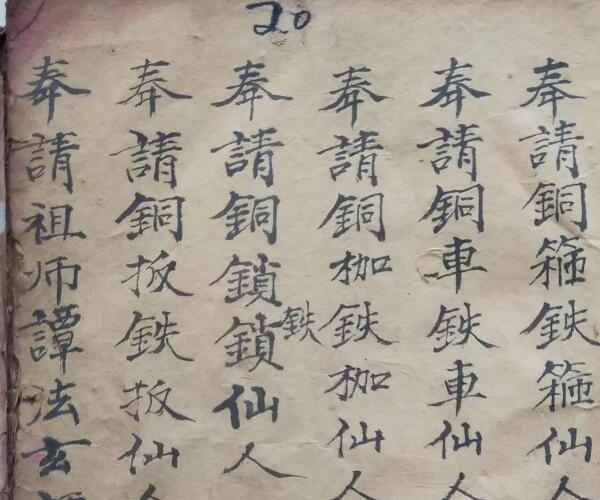 20
奉請銅箍鉄箍仙
奉請銅車鉄車仙人
奉請銅枷鉄枷仙人
奉請銅鎖鉄鎖仙人
奉請銅扳鉄扳仙人
奉請祖师譚法玄